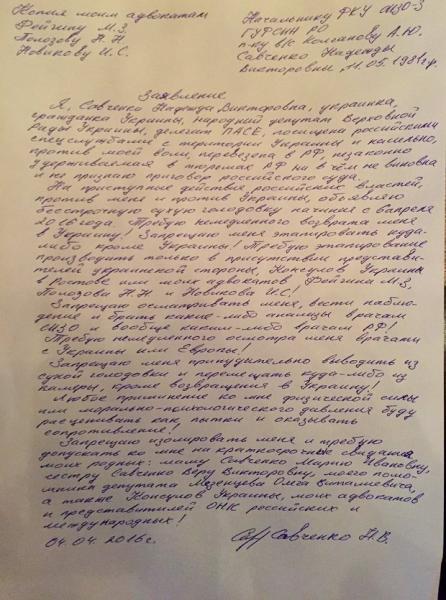 Копия моим адвокатам
Фейгину М.З.
Полозову Н.Н
Новикову И.С.
Начальнику ФКУ СИЗО-3
ГУФСИН РО
п-ку в/с Колганову А.Ю.
Савченко Надежды
Викторовны, 11.05.1981г.
Заявление
Я, Савченко Надежда Викторовна, украинка,
гражданка Украины, народный депутат Верховной
Рады Украины, делегат ПАСЕ, похищена российскими
спецслужбами с территории Украины и насильно,
против моей воли, перевезена в РФ, незаконно
удерживаемая в тюрьмах РФ ни в чём не виновна
и не признаю приговор российского суда.
На преступные действия российских властей,
против меня и против Украины, объявляю
бессрочную сухую голодовку начиная с 6 апреля
2016 года. Требую немедленного возврата меня
в Украину! Запрещаю меня этапировать куда-
либо кроме Украины! Требую этапирование
производить только в присутствии представи-
телей украинской стороны, Консулов Украины
в Ростове или моих адвокатов, Фейгина М.З,
Полозова Н.Н и Новикова И.С!
Запрещаю осматривать меня, вести наблю-
дение и брать какие-либо анализы врачам
СИЗО и вообще каким-либо врачам РФ!
Требую немедленного осмотра меня врачами
с Украины или Европы!
Запрещаю меня принудительно выводить из
сухой голодовки и перемещать куда-либо из
камеры, кроме возвращения в Украину!
Любое применение ко мне физической силы
или морально-психологического давления буду
расценивать как пытки и оказывать
сопротивление!
Запрещаю изолировать меня и требую
допускать ко мне на краткосрочные свидания
моих родных: маму Савченко Марию Ивановну,
сестру Савченко Веру Викторовну, моего помо-
щника депутата Мезенцева Олега Виталиевича,
а также Консулов Украины, моих адвокатов
и представителей ОНК российских и
международных!
04.04.2016г. Савченко Н.В.